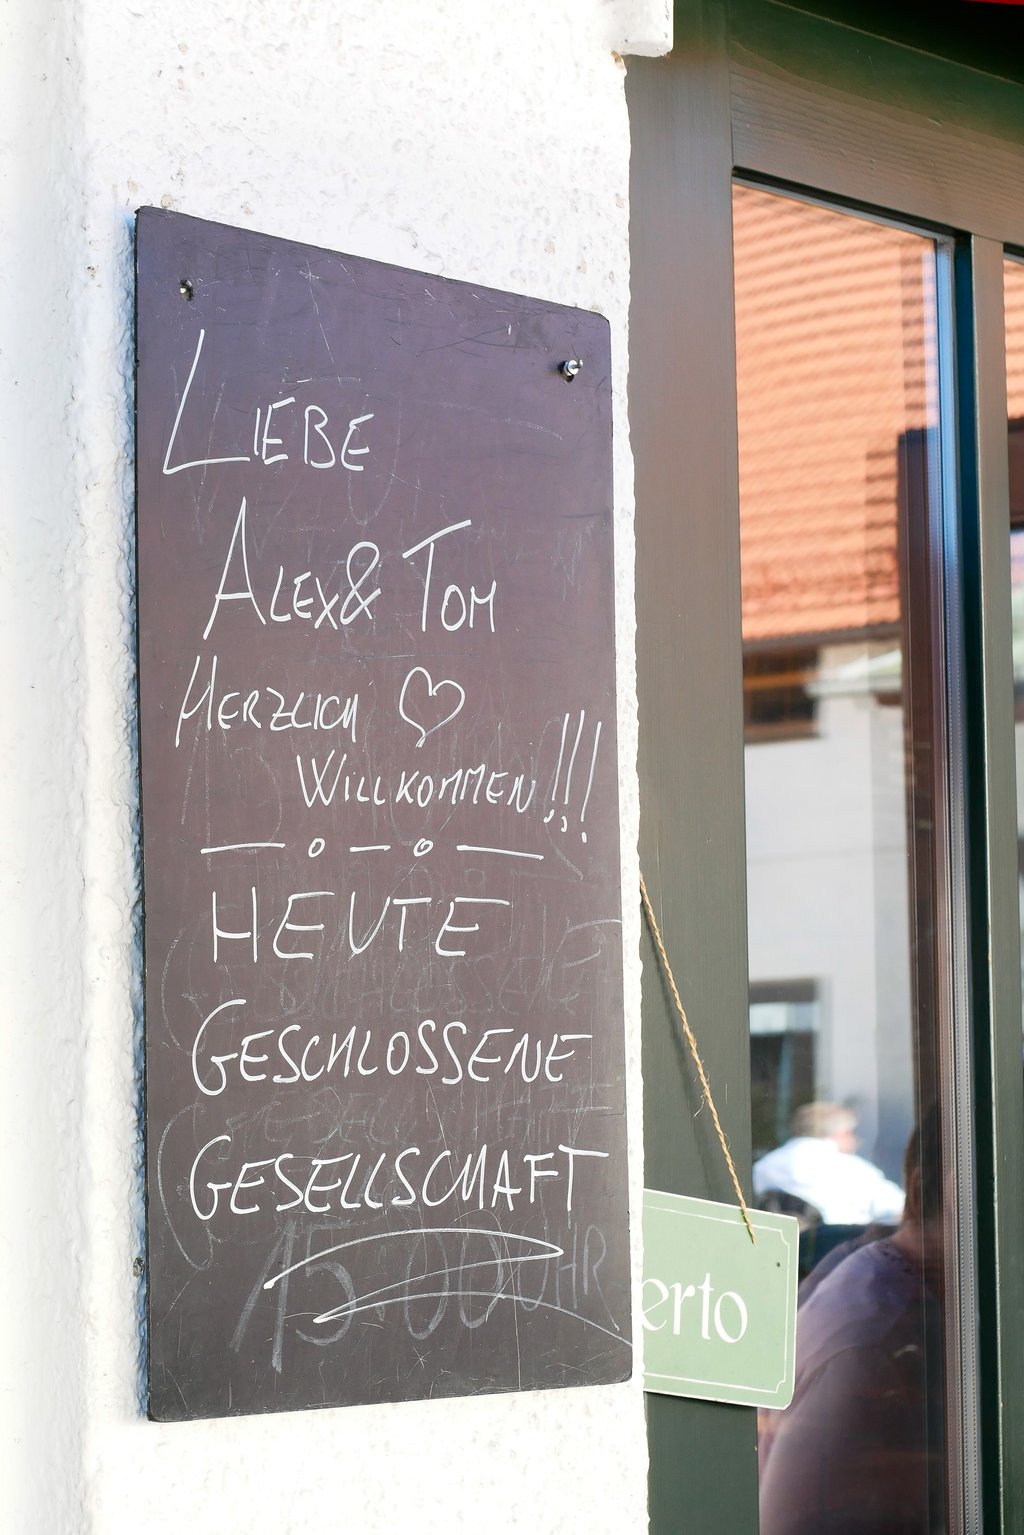 LIEBE
ALEX & TOM
HERZLICH ♡
WILLKOMMEN!!!
HEUTE
GESCHLOSSENE
GESELLSCHAFT
15:00 UHR
erto